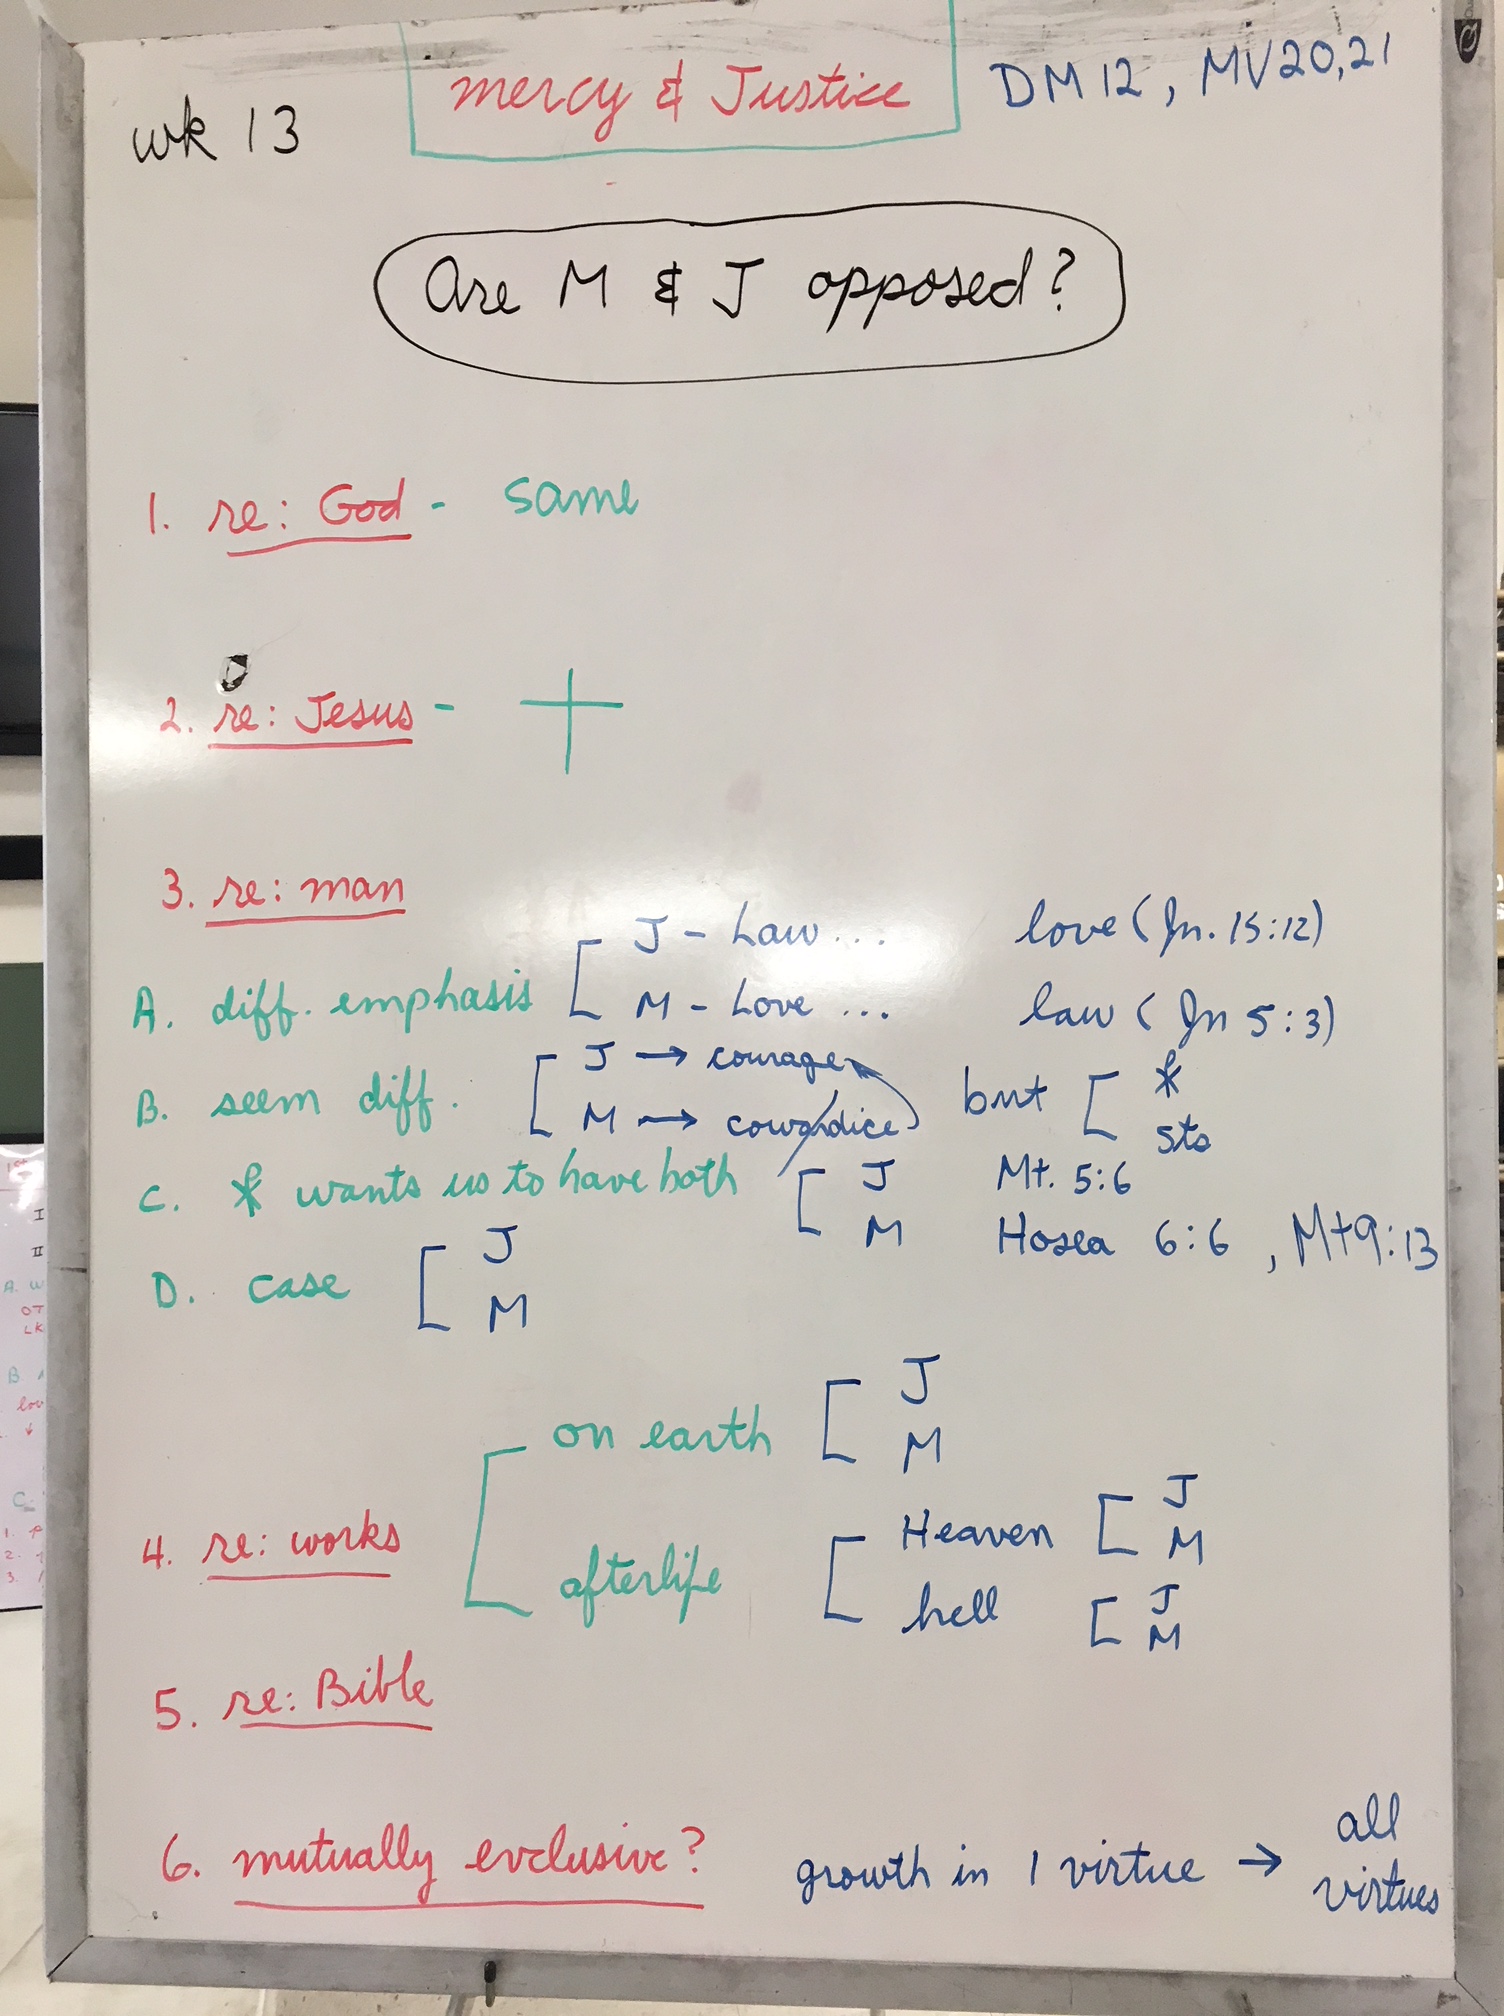 wk 13
mercy & Justice
DM 12, MV 20,21
Are M & J opposed?
1. re: God - same
2. re: Jesus -
3. re: man
A. diff. emphasis [ J - Law ... love (Jn. 15:12)
M - Love ... law (Jn 5:3)
B. seem diff. [ J → courage but [
M → cowardice sts
C. wants us to have both [ J Mt. 5:6
M Hosea 6:6, Mt 9:13
D. case [ J
M
4. re: works [ on earth [ J
M
afterlife [ Heaven [ J
M
hell [ J
M
5. re: Bible
6. mutually exclusive? growth in 1 virtue → all
virtues